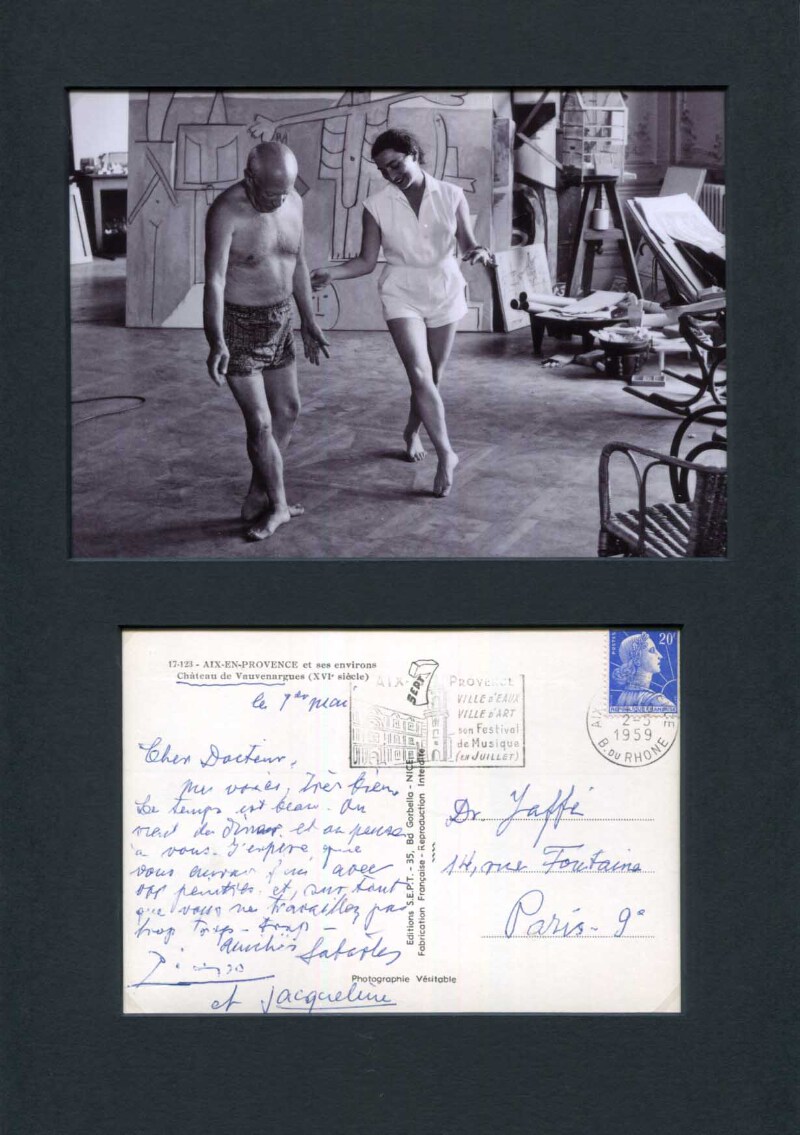 17-123 - AIX-EN-PROVENCE et ses environs
Château de Vauvenargues (XVIᵉ siècle)
le 1er mai
AIX PROVENCE
VILLE D'EAUX
VILLE D'ART
son Festival
de Musique
(EN JUILLET)
POSTES 20f
2-5
1959
B. DU RHONE
Cher Docteur,
me voici, très bien.
Le temps est beau. On
vient de dîner et on pense
à vous. J'espère que
vous aurez fini avec
vos peintres et, surtout
que vous ne travaillez pas
trop trop - trop -
Sabartés
et Jacqueline
Editions S.E.P.T. - 35, Bd Gorbella - NICE
Fabrication Française - Reproduction Interdite
Dr Jaffé
14, rue Fontaine
Paris - 9e
Photographie Véritable